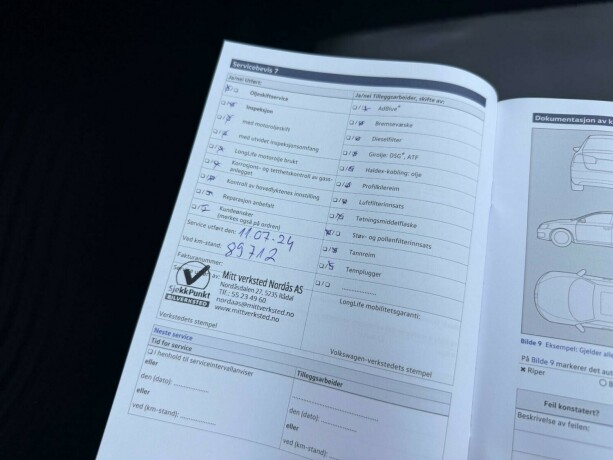 Servicebevis 7
Ja/nei Utført:
Oljeskiftservice
Inspeksjon
med motoroljeskift
med utvidet inspeksjonsomfang
LongLife motorolje brukt
Korrosjons- og tetthetskontroll av gass-
anlegget
Kontroll av hovedlyktenes innstilling
Reparasjon anbefalt
Kundeønsker
(merkes også på ordren)
Service utført den: 11.07.24
Ved km-stand: 89712
Fakturanummer:
Mitt verksted Nordås AS
Nordåsdalen 27, 5235 Rådal
Tlf.: 55 23 49 60
nordaas@mittverksted.no
www.mittverksted.no
SjekkPunkt
BILVERKSTED
Verkstedets stempel
Ja/nei Tilleggsarbeider, skifte av:
AdBlue®
Bremsevæske
Dieselfilter
Girolje: DSG®, ATF
Haldex-kobling: olje
Profilkilereim
Luftfilterinnsats
Tetningsmiddelflaske
Støv- og pollenfilterinnsats
Tannreim
Tennplugger
LongLife mobilitetsgaranti:
Volkswagen-verkstedets stempel
Neste service
Tid for service
i henhold til serviceintervallanviser
eller
den (dato):
eller
ved (km-stand):
Tilleggsarbeider
den (dato):
eller
ved (km-stand):
Dokumentasjon av k
Bilde 9 Eksempel: Gjelder alle
På Bilde 9 markerer det aut
Riper
Feil konstatert?
Beskrivelse av feilen: